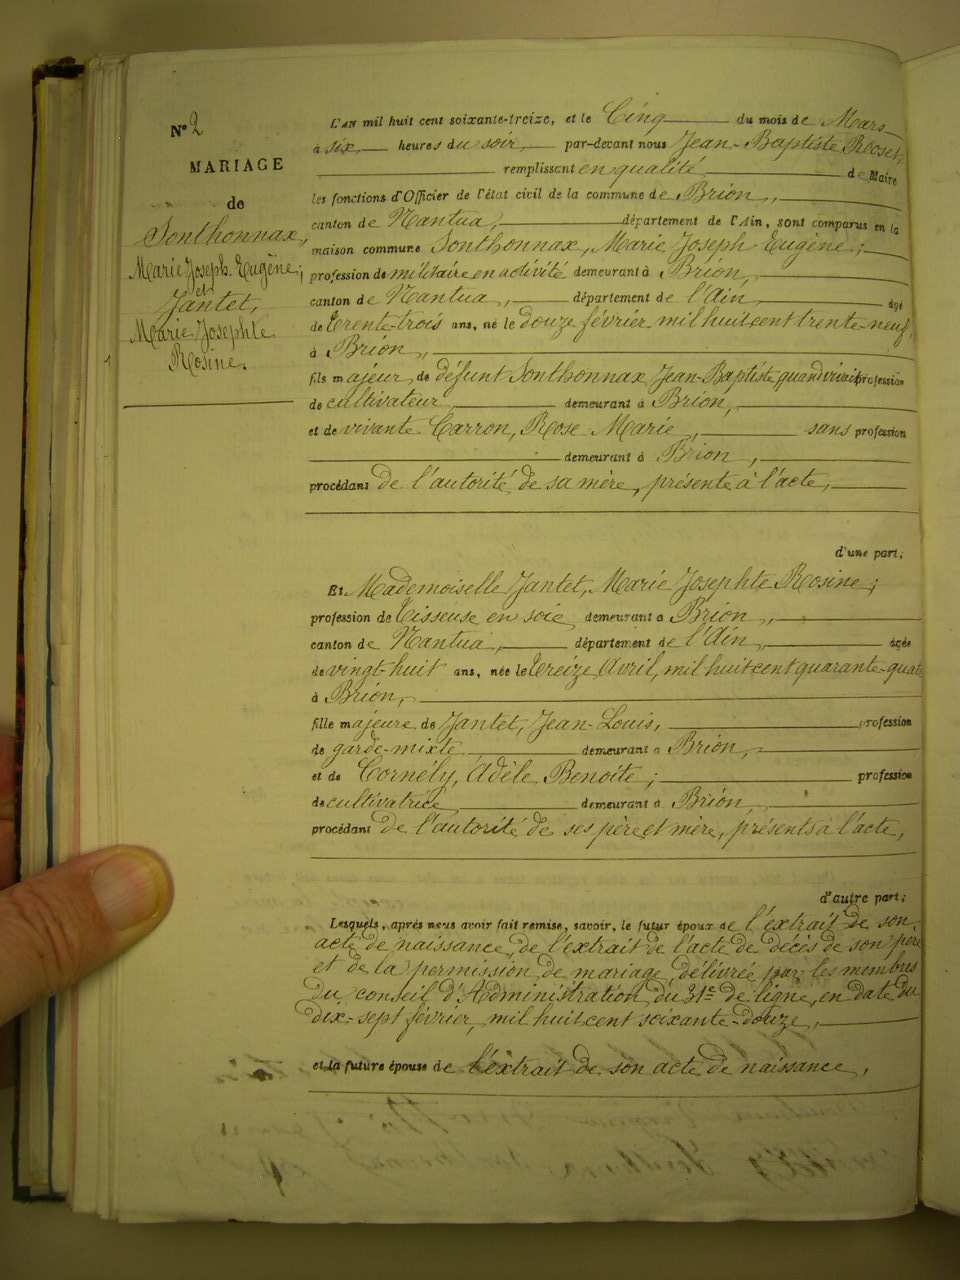 N° 2
MARIAGE
de
Sonthonnax,
Marie Joseph Eugène;
et
Jantet,
Marie Josephte
Rosine.
L'AN mil huit cent soixante-treize, et le Cinq du mois de Mars
à six heures du soir, par-devant nous Jean-Baptiste Roset,
remplissant en qualité de Maire
les fonctions d'Officier de l'état civil de la commune de Brion,
canton de Nantua, département de l'Ain, sont comparus en la
maison commune Sonthonnax, Marie Joseph Eugène;
profession de militaire en activité demeurant à Brion,
canton de Nantua, département de l'Ain, âgé
de trente-trois ans, né le douze février mil huit cent trente-neuf,
à Brion,
fils majeur de défunt Sonthonnax, Jean-Baptiste quand vivait profession
de cultivateur demeurant à Brion,
et de vivante Carron, Rose Marie, sans profession
demeurant à Brion,
procédant de l'autorité de sa mère, présente à l'acte,
d'une part;
Et Mademoiselle Jantet, Marie Josephte Rosine;
profession de tisseuse en soie demeurant à Brion,
canton de Nantua, département de l'Ain, âgée
de vingt-huit ans, née le treize Avril, mil huit cent quarante-quatre
à Brion,
fille majeure de Jantet, Jean-Louis, profession
de garde-mixte demeurant à Brion,
et de Cornély, Adèle Benoite; profession
de cultivatrice demeurant à Brion,
procédant de l'autorité de ses père et mère, présents à l'acte,
d'autre part;
Lesquels, après nous avoir fait remise, savoir, le futur époux de l'extrait de son
acte de naissance, de l'extrait de l'acte de décès de son père
et de la permission de mariage délivrée par les membres
du conseil d'Administration du 31e de ligne, en date du
dix-sept février, mil huit cent soixante-douze,
et la future épouse de l'extrait de son acte de naissance,